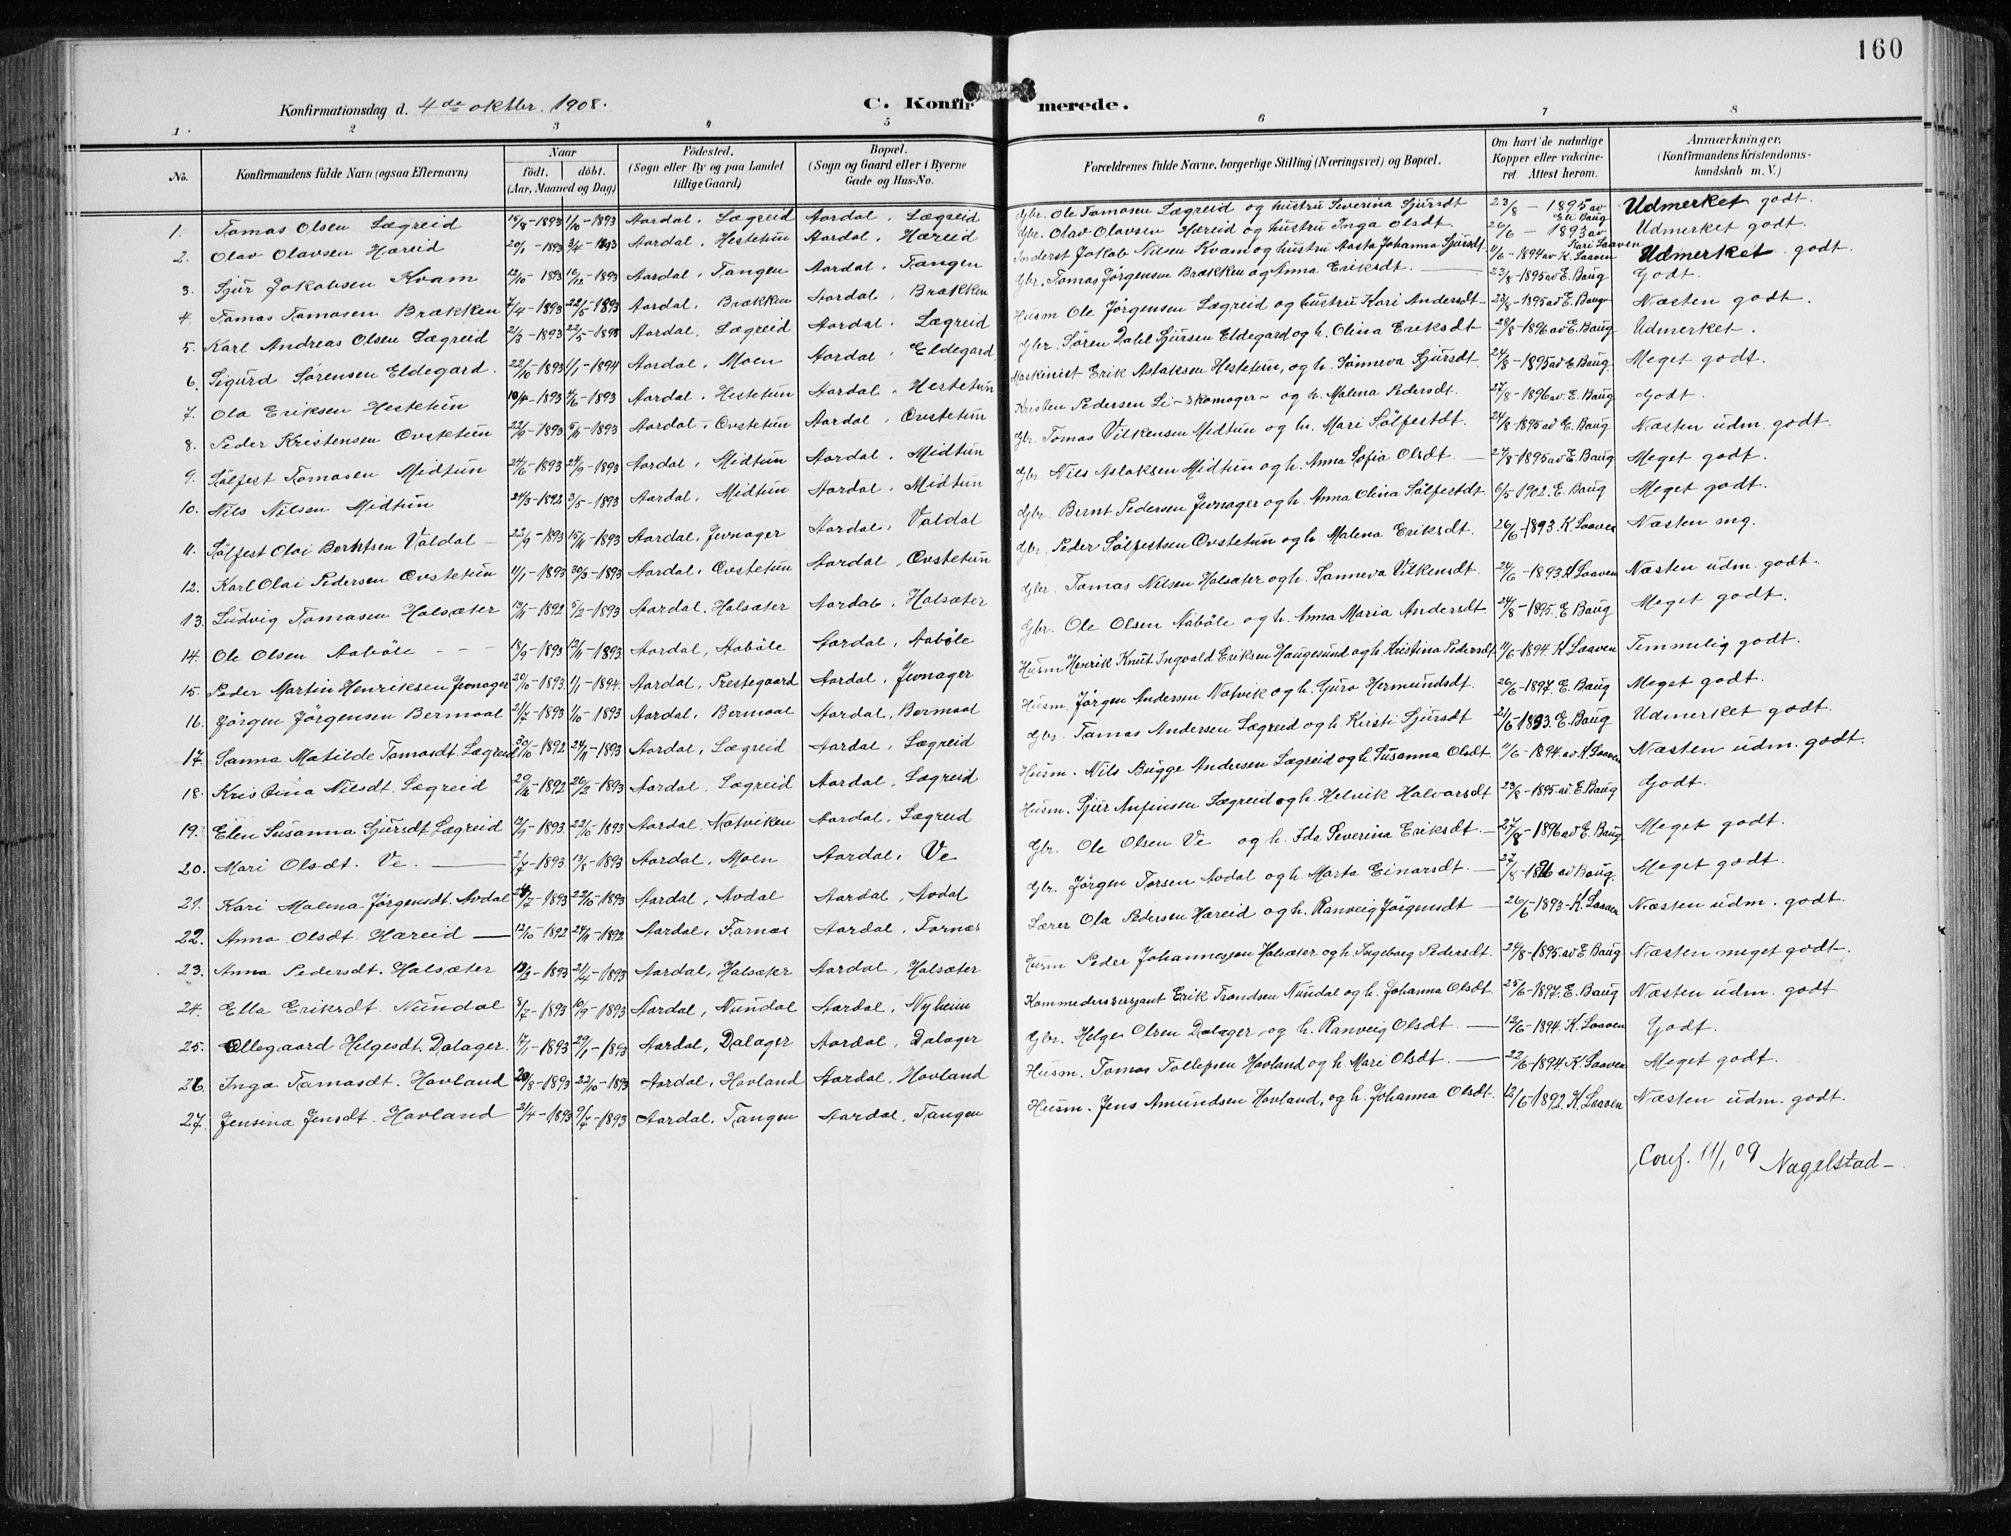 160
Konfirmationsdag d. 4de oktbr. 1908.
C. Konfirmerede.
1 2 3 4 5 6 7 8
No. Konfirmandens fulde Navn (ogsaa Efternavn) Naar födt. döbt. (Aar, Maaned og Dag) Födested. (Sogn eller By og paa Landet tillige Gaard) Bopæl. (Sogn og Gaard eller i Byerne Gade og Hus-No. Forældrenes fulde Navne, borgerlige Stilling (Næringsvei) og Bopæl. Om havt de naturlige Kopper eller vakcineret. Attest herom. Anmærkninger. (Konfirmandens Kristendomskundskab m. V.)
1. Tomas Olsen Lægreid 1893 1/10-1893 Aardal, Lægreid Aardal, Lægreid Gbr. Ole Tomasen Lægreid og hustru Severina Sjursdt 23/8-1895 av E. Baug Udmerket godt.
2. Olav Olavsen Hæreid 20/1-1893 3/4-1893 Aardal, Hestetun Aardal, Hæreid Gbr. Olav Olavsen Hæreid og hustru Inga Olsdt. 26/6-1893 av Kari Laaven Udmerket godt.
3. Sjur Jakobsen Kvam 12/10-1893 10/12-1893 Aardal, Tangen Aardal, Tangen Inderst Jakob Nilsen Kvam og hustru Aasta Johanna Sjursdt. 11/6-1894 av K. Laaven Udmerket godt.
4. Tomas Tomasen Brækken 7/4-1893 22/5-1893 Aardal, Brækken Aardal, Brækken Gbr. Tomas Jørgensen Brækken og Anna Eriksdt. 23/8-1895 av E. Baug Godt.
5. Karl Andreas Olsen Lægreid 21/3-1893 22/5-1893 Aardal, Lægreid Aardal, Lægreid Husm. Ole Jørgensen Lægreid og hustru Kari Andersdt 23/8-1895 av E. Baug Næsten godt.
6. Sigurd Sørensen Eldegard. 22/10-1893 1/1-1894 Aardal, Moen Aardal, Eldegard Gbr. Søren Dahl Sjursen Eldegard og h. Olina Eriksdt 28/8-1896 av E. Baug Udmerket.
7. Ola Eriksen Hestetun 10/4-1893 4/6-1893 Aardal, Hestetun Aardal, Hestetun Maskinist Erik Aslaksen Hestetun, og h. Sønneva Sjursdt. 24/8-1895 av E. Baug Meget godt.
8. Peder Kristensen Ovstetun 22/9-1893 5/11-1893 Aardal, Ovstetun Aardal, Ovstetun Kristen Pedersen Li - skomager - og h. Malena Pedersdt. 27/8-1896 av E. Baug Godt.
9. Sølfest Tomasen Midtun 24/6-1893 24/9-1893 Aardal, Midtun Aardal, Midtun Gbr. Tomas Vilkensen Midtun og h. Mari Sølfestdt. 24/8-1895 av E. Baug Næsten udm. godt.
10. Nils Nilsen Midtun 24/3-1892 3/5-1893 Aardal, Midtun Aardal, Midtun Gbr. Nils Aslaksen Midtun og h. Anna Sofia Olsdt. 27/8-1895 av E. Baug Meget godt.
11. Sølfest Olai Berntsen Valdal 22/9-1893 15/11-1893 Aardal, Jevnager Aardal, Valdal Gbr. Bernt Pedersen Jevnager og h. Anna Olina Sølfestdt 6/5-1902. E. Baug Meget godt.
12. Karl Olai Pedersen Ovstetun 11/1-1893 30/3-1893 Aardal, Ovstetun Aardal, Ovstetun Gbr. Peder Sølfestsen Ovstetun og h. Malena Eriksdt. 26/6-1893. K. Laaven Næsten mg.
13. Ludvig Tomasen Holsæter 13/11-1892 5/2-1893 Aardal, Holsæter Aardal, Holsæter Gbr. Tomas Nilsen Holsæter og h. Sanneva Vilkensdt. 26/6-1893 K. Laaven Næsten udm. godt.
14. Ole Olsen Aabøle 18/9-1893 12/11-1893 Aardal, Aabøle Aardal, Aabøle Gbr. Ole Olsen Aabøle og h. Anna Maria Andersdt 24/8-1895. E. Baug Meget godt.
15. Peder Martin Henriksen Jevnager 20/10-1893. 1/1-1894. Aardal, Prestegaard Aardal, Jevnager Husm Henrik Knut Ingvald Eriksen Haugesund og h. Kristina Pedersdt 11/6-1894. K. Laaven Temmelig godt.
16. Jørgen Jørgensen Bermaal 21/7-1893 1/10-1893 Aardal, Bermaal Aardal, Bermaal Husm. Jørgen Andersen Natvik og h. Guro Hermundsdt. 26/6-1897. E. Baug Meget godt.
17. Sanna Matilde Tomasdt. Lægreid 30/10-1892 24/11-1893 Aardal, Lægreid Aardal, Lægreid Gbr. Tomas Andersen Lægreid og h. Kirsti Sjursdt 21/6-1893. E. Baug Udmerket godt.
18. Kristina Nilsdt. Lægreid 1892 26/2-1893 Aardal, Lægreid Aardal, Lægreid Husm. Nils Bugge Andersen Lægreid og h. Susanna Olsdt. 11/6-1894. av K. Laaven Næsten udm. godt.
19. Elen Susanna Sjursdt. Lægreid 12/9-1893 22/10-1893 Aardal, Natviken Aardal, Lægreid Husm. Sjur Anfinsen Lægreid og h. Helvik Halvarsdt 23/8-1895 av E. Baug Godt.
20. Mari Olsdt. Ve 2/7-1893. 13/8-1893 Aardal, Moen Aardal, Ve Gbr. Ole Olsen Ve og h. Ida Severina Eriksdt. 27/8-1896 av E. Baug Meget godt.
21. Kari Malena Jørgensdt. Avdal 24/7-1893 22/10-1893 Aardal, Avdal Aardal, Avdal Gbr. Jørgen Torsen Avdal og h. Marta Einarsdt. 27/8-1896 av Baug. Meget godt
22. Anna Olsdt. Hæreid 12/10-1892 24/11-1892 Aardal, Farnæs Aardal, Farnæs Lærer Ola Pedersen Hæreid og h. Ranveig Jørgensdt 26/6-1893. K. Laaven Næsten udm. godt.
23. Anna Pedersdt. Holsæter 1893 2/4-1893 Aardal, Holsæter Aardal, Holsæter Husm Peder Johannessen Holsæter og h. Ingeborg Pedersdt. 24/8-1895 av E Baug Næsten meget godt.
24. Ella Eriksdt. Nundal 8/7-1893 10/9-1893 Aardal, Nundal Aardal, Nyheim Kommedersersjant Erik Trondsen Nundal og h. Johanna Olsdt. 25/6-1897. E. Baug Næsten udm. godt
25. Ollegaard Helgesdt. Dalager. 17/1-1893 29/1-1893 Aardal, Dalager Aardal, Dalager Gbr. Helge Olsen Dalager, og h. Ranveig Olsdt. 12/6-1894. K. Laaven Godt.
26. Inga Tomasdt. Hovland 20/8-1893 22/10-1893 Aardal, Hovland Aardal, Hovland Husm. Tomas Tollefsen Hovland og h. Mari Olsdt. 22/6-1894. K. Laaven Meget godt.
27. Jensina Jensdt. Hovland 21/4-1893 9/7-1893 Aardal, Tangen Aardal, Tangen Husm. Jens Amundsen Hovland, og h. Johanna Olsdt. 12/6-1892. K. Laaven Næsten udm. godt.
Conf. 11/1 09 Nagelstad